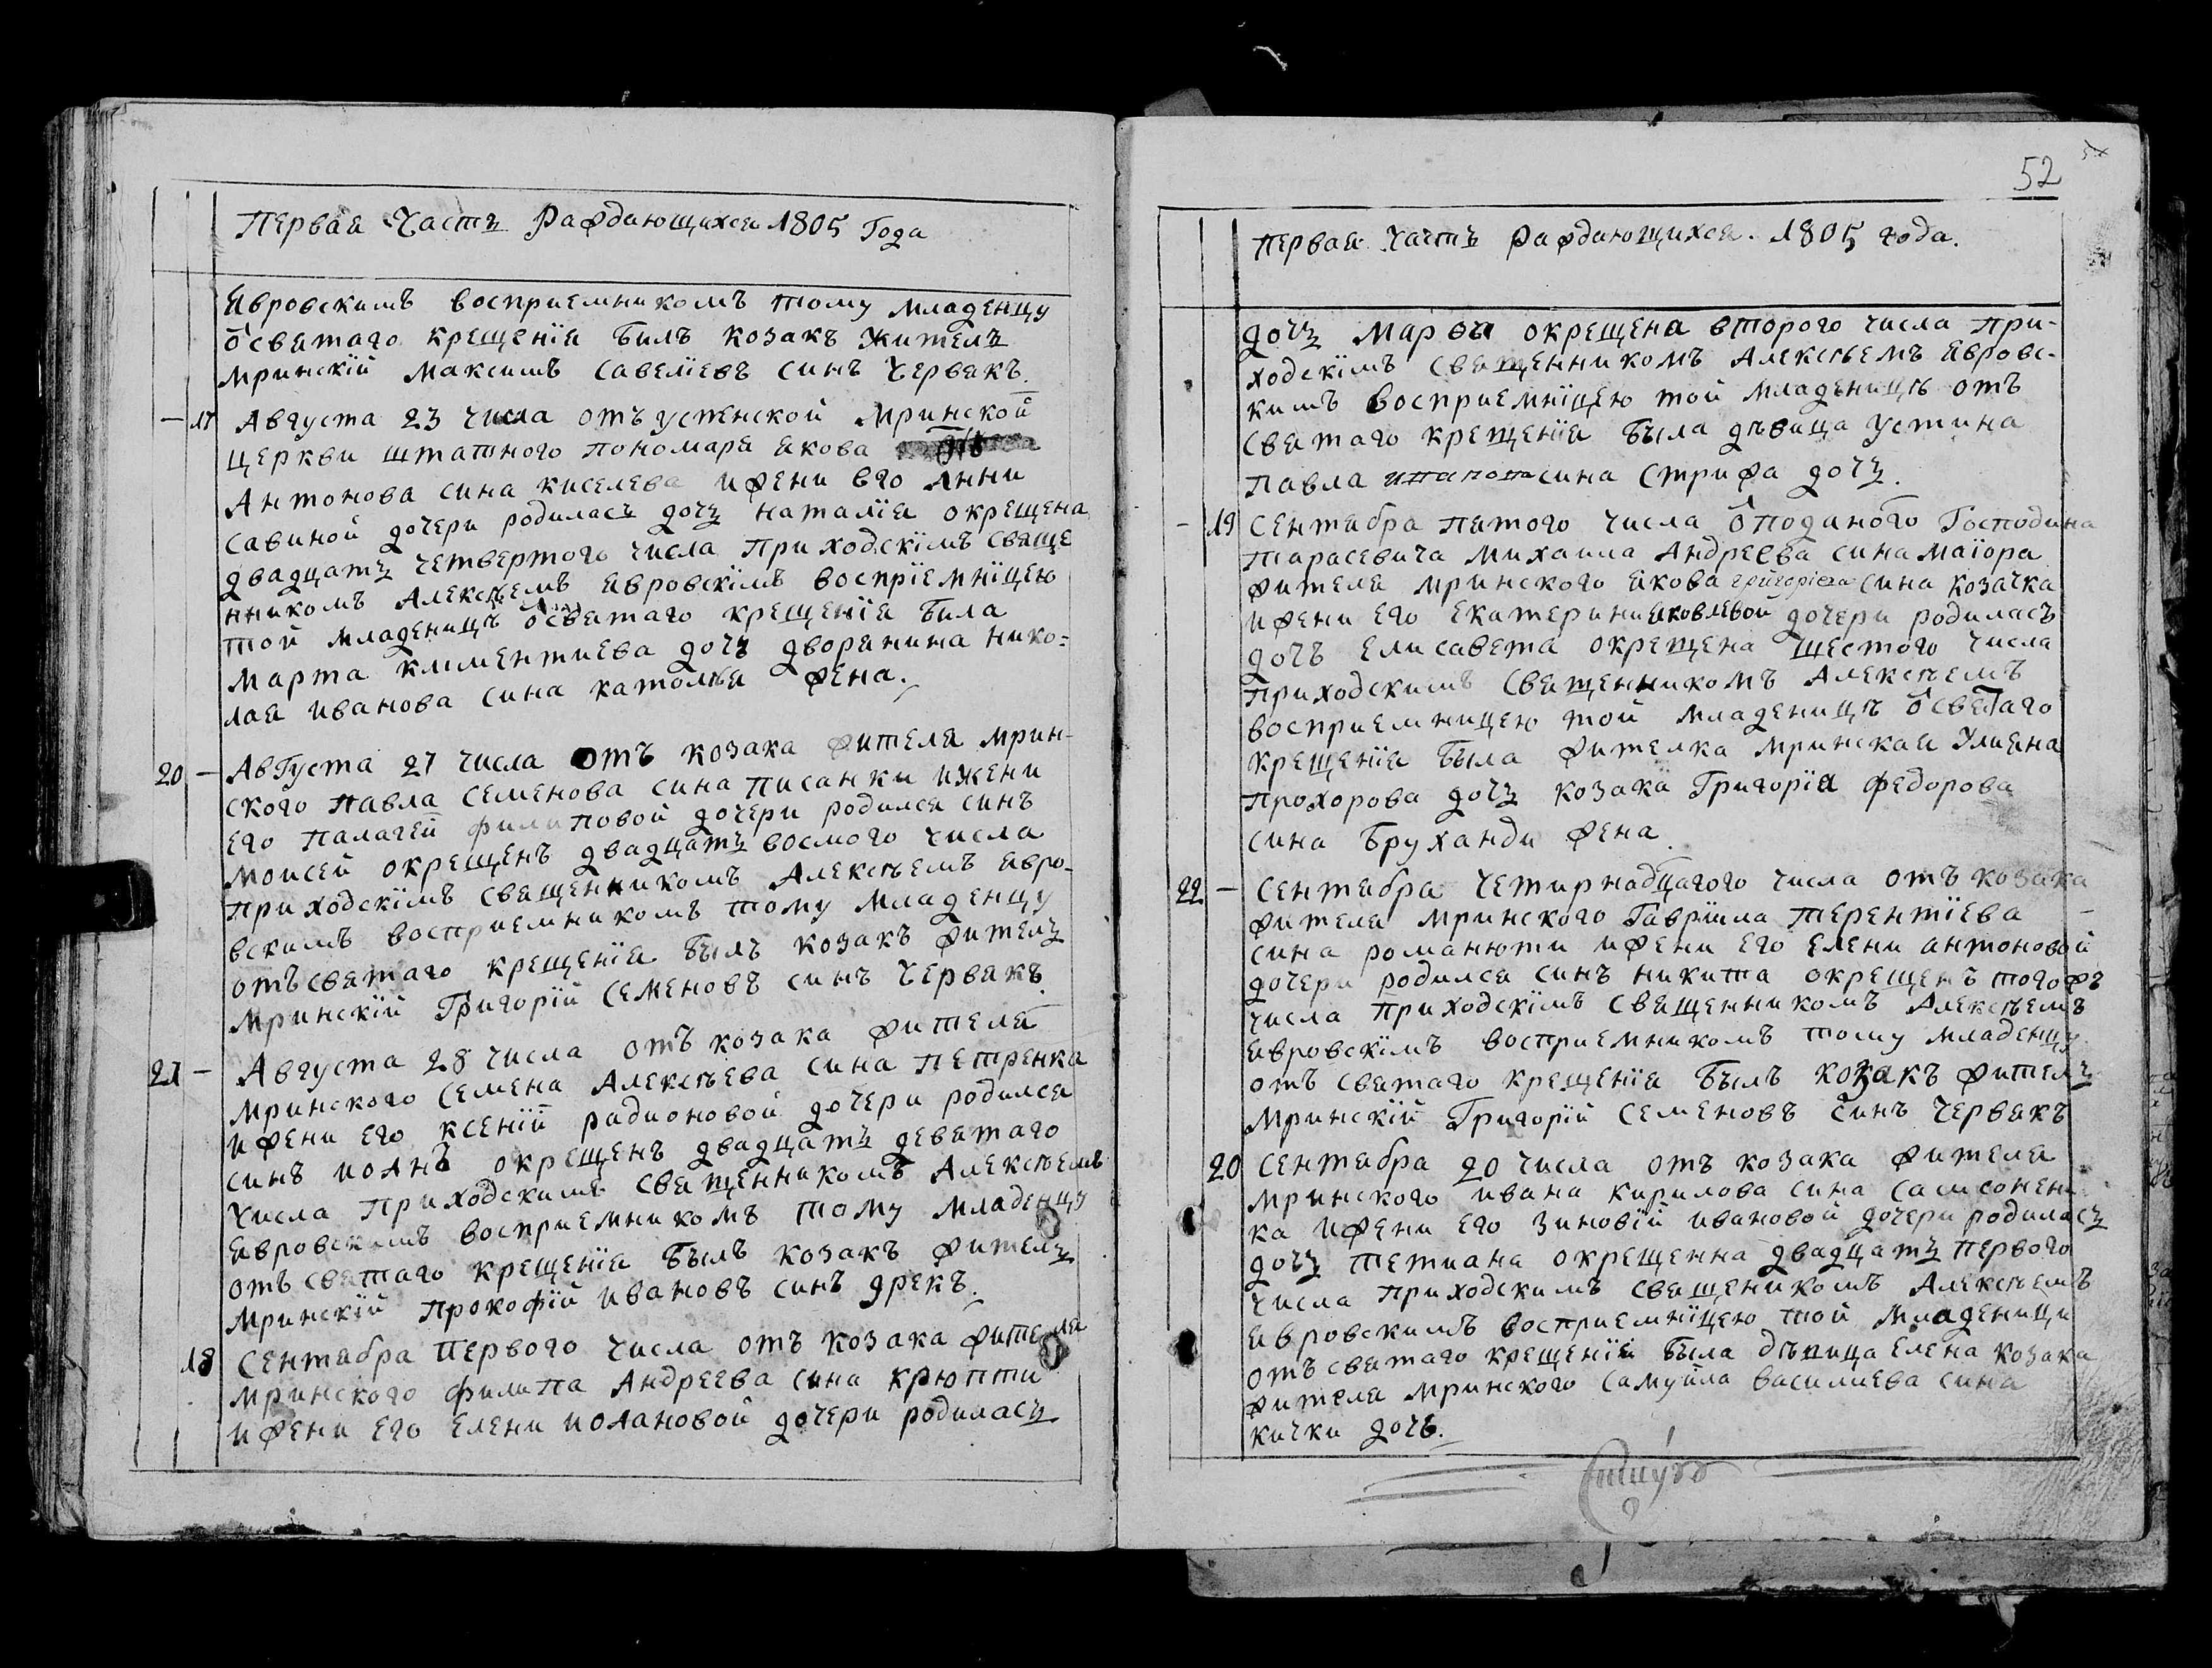 Первая Часть Раждающихся 1805 Года
Явровскимъ восприемникомъ тому младенцу
ѿ святаго крещенїя билъ козакъ житель
мринскїй Максимъ Савелїевъ синъ Червякъ.
— 17 Августа 23 числа отъ успенской мринской
церкви штатного пономаря Якова
Антонова сина киселева и жени его Анни
савиной дочери родилась дочь наталїя окрещена
двадцать четвертого числа Приходскїмъ Свяще
нникомъ Алексѣемъ Явровскїмъ восприемнїцею
той младеницѣ ѿ святаго крещенїя била
Марта климентиева дочь дворянина нико=
лая иванова сина католѣя жена.
20 — Августа 27 числа отъ козака жителя мрин-
ского Павла Семенова сина Писанки и жени
его Палагей филиповой дочери родился синъ
Моисей окрещенъ двадцать восмого числа
Приходскїмъ Священникомъ Алексѣемъ Явро-
вскимъ восприемникомъ тому младенцу
отъ святаго крещенїя былъ козакъ житель
Мринскїй Григорїй Семеновъ синъ Червякъ.
21 — Августа 28 числа отъ козака жителя
мринского Семена Алексѣева сина Петренка
и жени его ксенїй радионовой дочери родился
синъ иоанъ окрещенъ двадцать девятаго
числа Приходскимъ Священникомъ Алексѣемъ
Явровскимъ восприемникомъ тому младенцу
отъ святаго крещенїя былъ козакъ житель
Мринскїй Прокофїй ивановъ синъ дрекъ.
18 Сентября Первого числа отъ козака жителя
мринского филипа Андреева сина крюпти
и жени его елени иолановой дочери родилась
52
Первая Часть Раждающихся. 1805 года.
дочь Марфа окрещена второго числа при-
ходскїмъ Священникомъ Алексѣемъ Явровс-
кимъ восприемнїцею той младеницѣ отъ
святаго крещенїя была дѣвица Устина
Павла сина Стрижа дочь.
— 19 Сентября Пятого числа ѿ поданого Господина
Тарасевича Михаила Андреева сина маїора
жителя мринского Якова григорїева сина козачка
и жени его екатерини яковлевой дочери родилась
дочъ елисавета окрещена шестого числа
приходскимъ Священникомъ Алексѣемъ
восприемницею той младеницѣ ѿ святаго
крещенїя была жителка мринская Улияна
Прохорова дочь козака Григорїя федорова
сина Бруханди жена.
22 — Сентября Четирнадцатого числа отъ козака
жителя мринского Гаврїила Терентїева
сина романюти и жени его елени антоновой
дочери родился синъ никита окрещенъ тогожъ
числа приходскїмъ священникомъ Алексѣемъ
Явровскїмъ восприемникомъ тому младенцу
отъ святаго крещенїя былъ козакъ житель
Мринскїй Григорїй Семеновъ синъ Червякъ
20 Сентября 20 числа отъ козака жителя
мринского ивана кирилова сина самсонен-
ка и жени его зиновїй ивановой дочери родилась
дочь тетиана окрещенна двадцать первого
числа приходскимъ священикомъ Алексѣемъ
Явровскимъ восприемнїцею той младеници
отъ святаго крещенїя была дѣвица елена козака
жителя мринского Самуйла василиева сина
кички дочь.